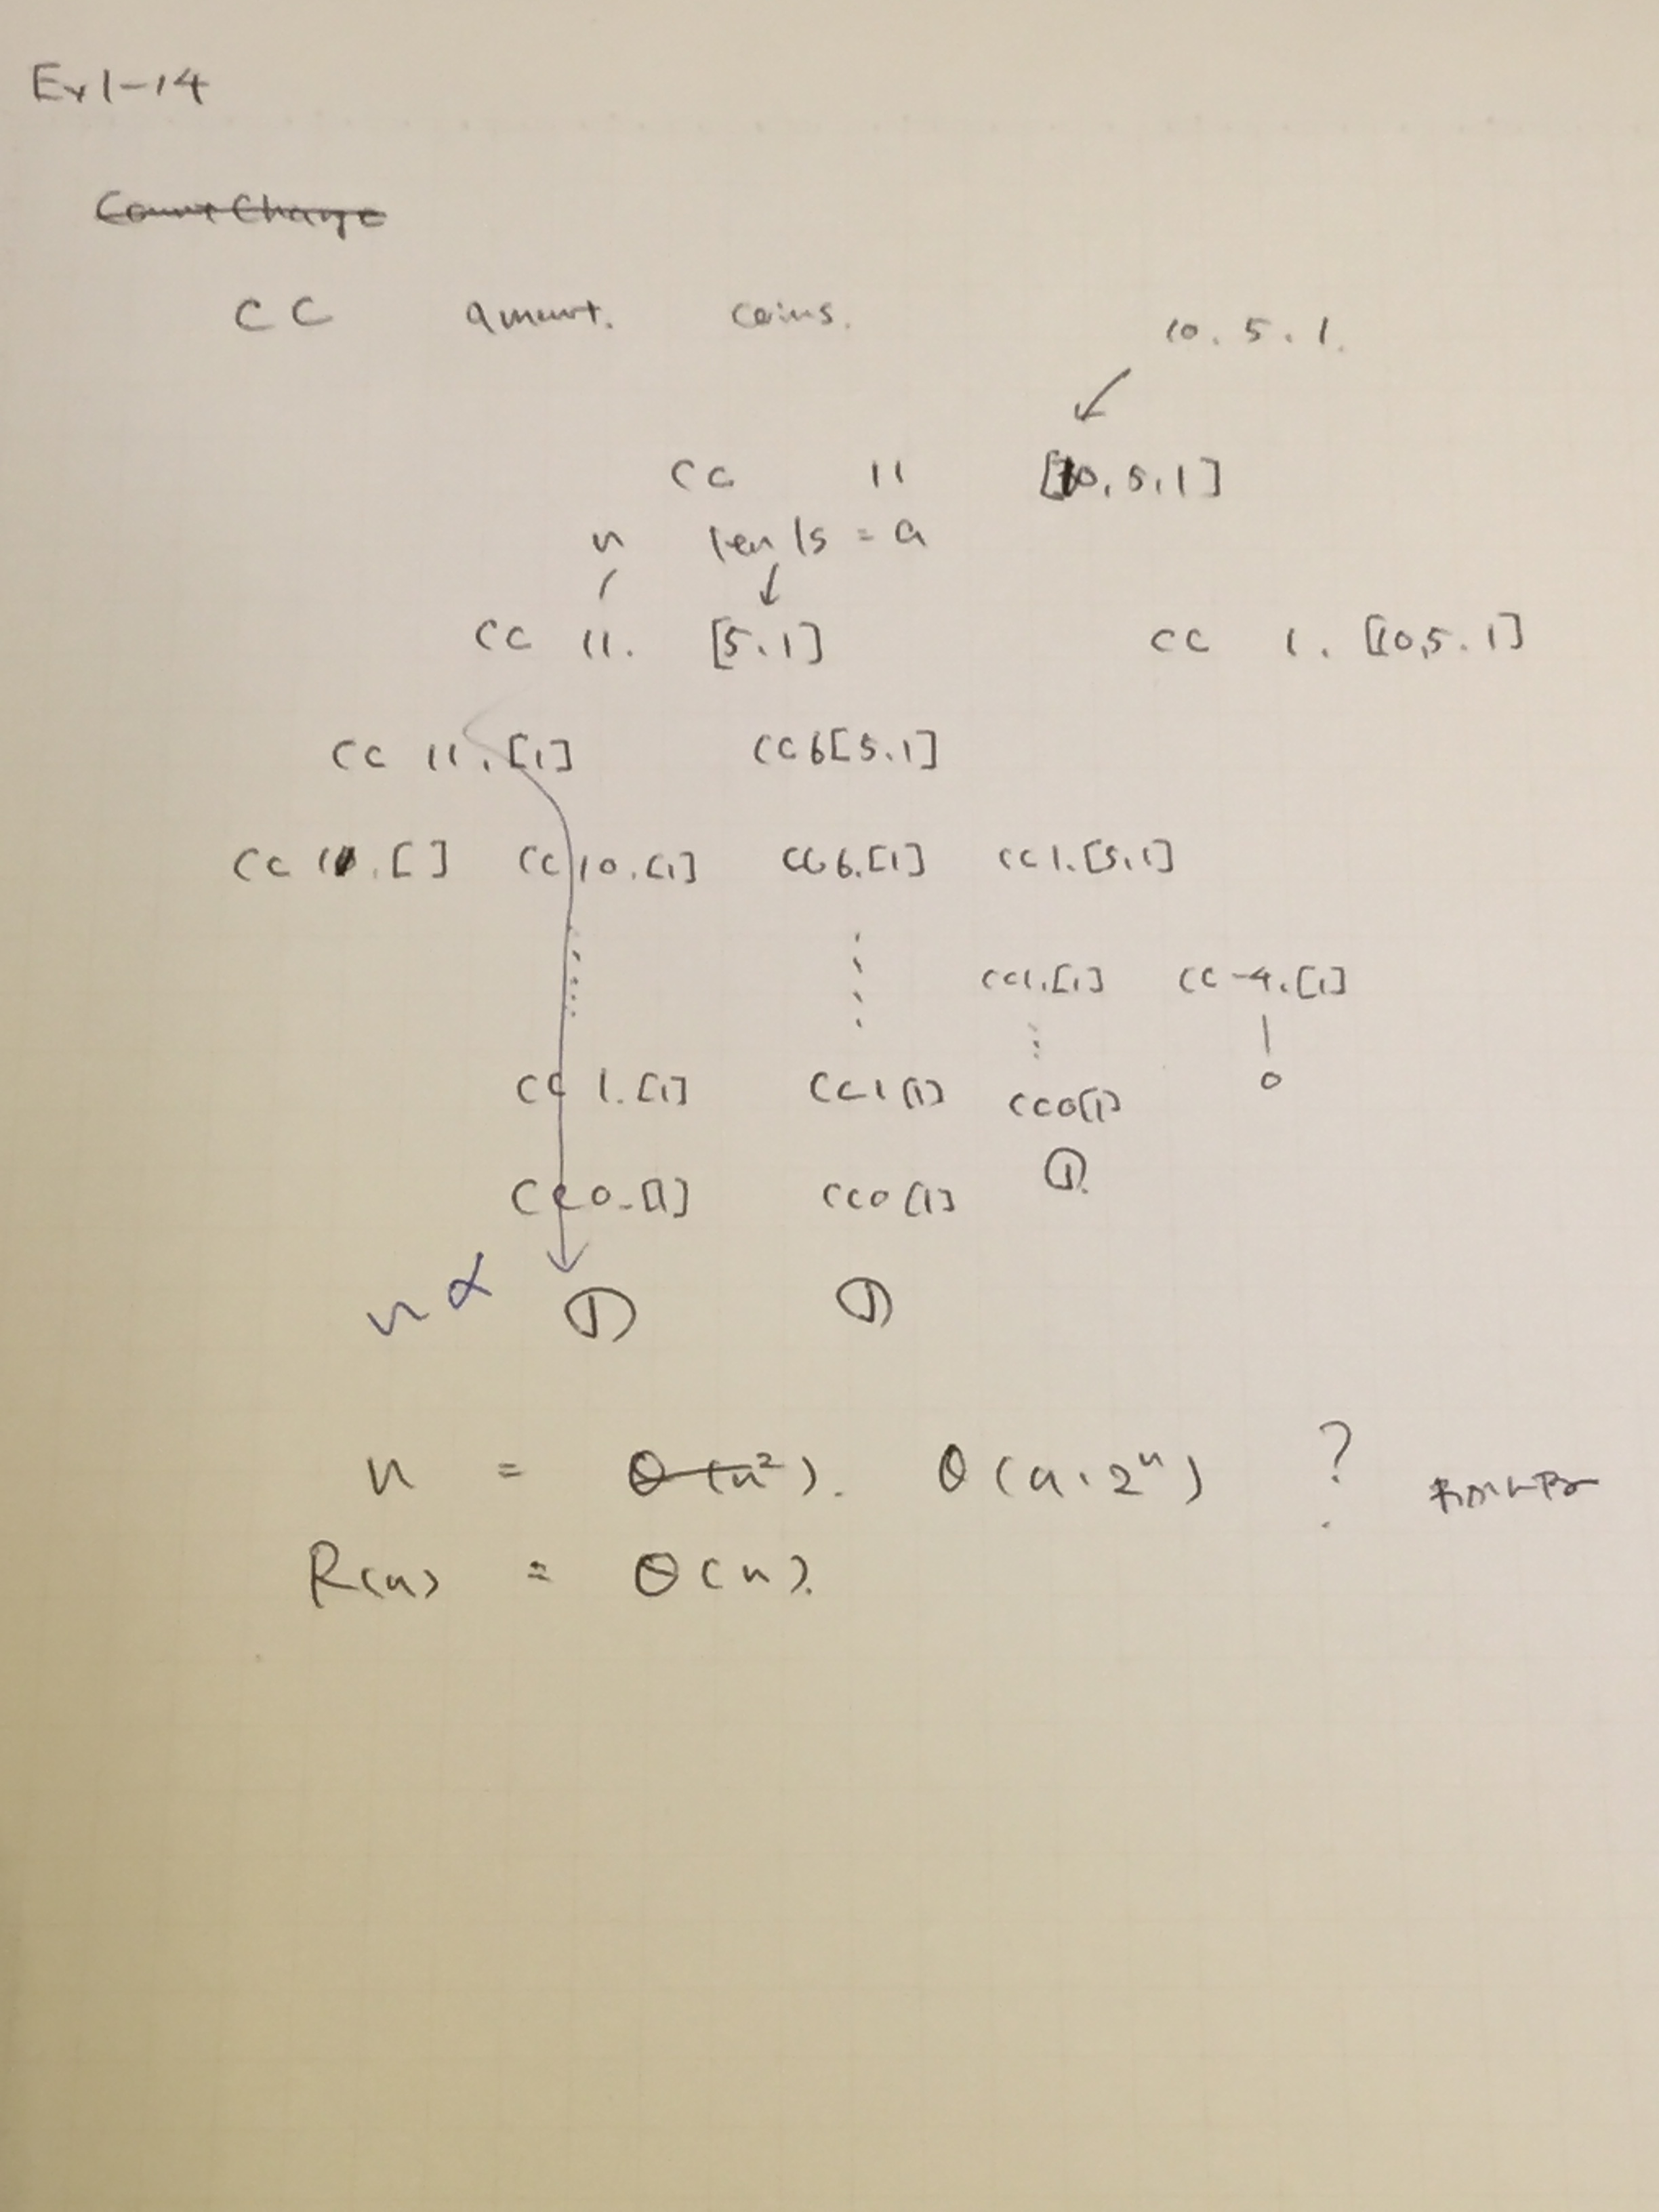 Ex1-14
CountChange
CC amount. coins.
10. 5. 1.
CC 11 [10, 5, 1]
n len ls = a
CC 11. [5.1] CC 1. [10,5.1]
CC 11. [1] CC 6 [5.1]
CC 11. [] CC 10. [1] CC 6. [1] CC 1. [5.1]
CC 1. [1] CC -4. [1]
CC 1. [1] CC 1 [1] CC 0 [1] 0
CC 0. [1] CC 0 [1] ①
n α ① ①
n = Θ(n²). Θ(a.2ⁿ) ?
R(n) = Θ(n).